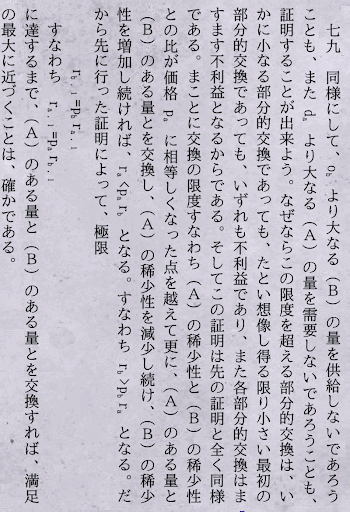 七九　同様にして、ob より大なる（B）の量を供給しないであろう
ことも、また da より大なる（A）の量を需要しないであろうことも、
証明することが出来よう。なぜならこの限度を超える部分的交換は、い
かに小なる部分的交換であっても、たとい想像し得る限り小さい最初の
部分的交換であっても、いずれも不利益であり、また各部分的交換はま
すます不利益となるからである。そしてこの証明は先の証明と全く同様
である。まことに交換の限度すなわち（A）の稀少性と（B）の稀少性
との比が価格 pa に相等しくなった点を越えて更に、（A）のある量と
（B）のある量とを交換し、（A）の稀少性を減少し続け、（B）の稀少
性を増加し続ければ、ra<parb となる。すなわち rb>pbra となる。だ
から先に行った証明によって、極限
rb,1=pbra,1
すなわち ra,1=parb,1
に達するまで、（A）のある量と（B）のある量とを交換すれば、満足
の最大に近づくことは、確かである。